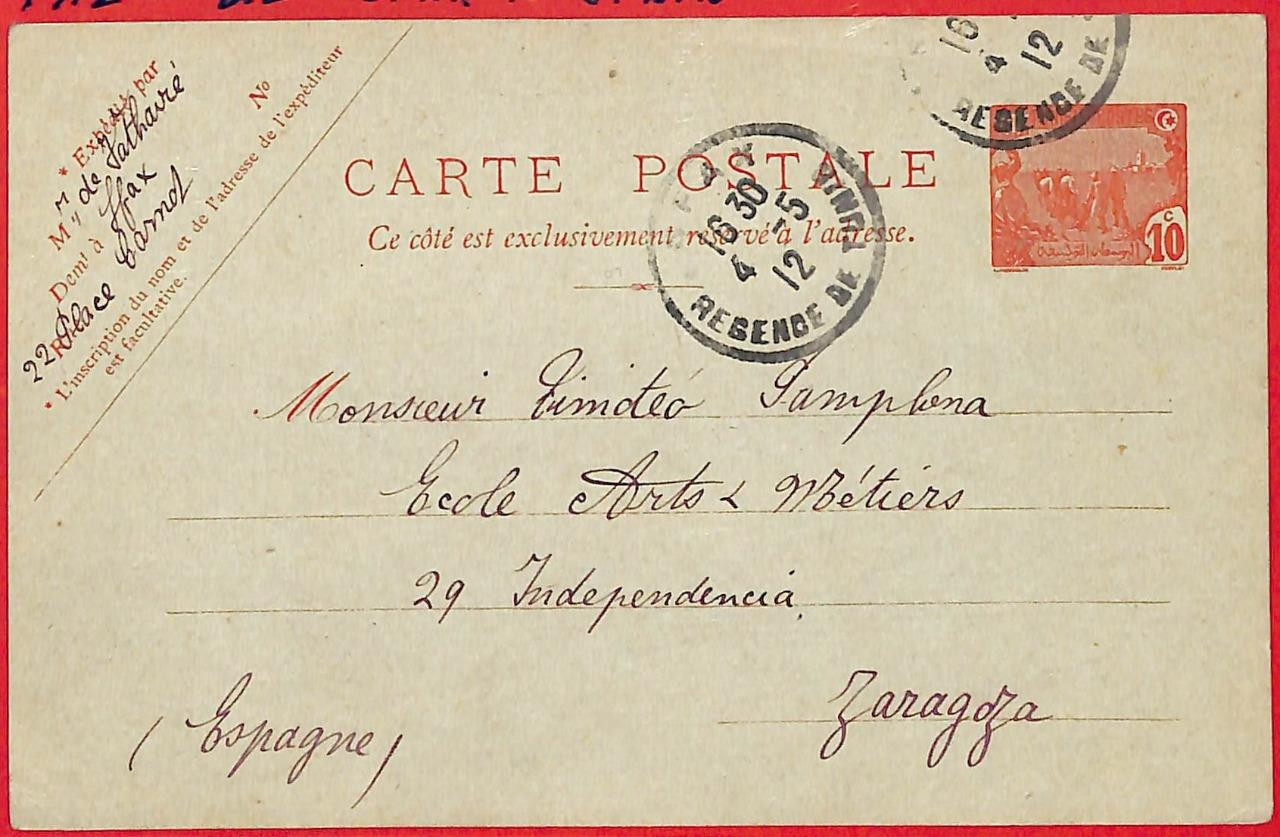 * Expédié par
Mr de
Demt à Sfax
22 Place Carnot
No
* L'inscription du nom et de l'adresse de l'expéditeur
est facultative.
CARTE POSTALE
Ce côté est exclusivement réservé à l'adresse.
16 30
4 -5
12
REGENCE DE TUNIS
16
4
12
REGENCE DE
POSTES
C
10
Monsieur Timotéo Pamplona
Ecole Arts & Métiers
29 Independencia
Zaragoza
(Espagne)